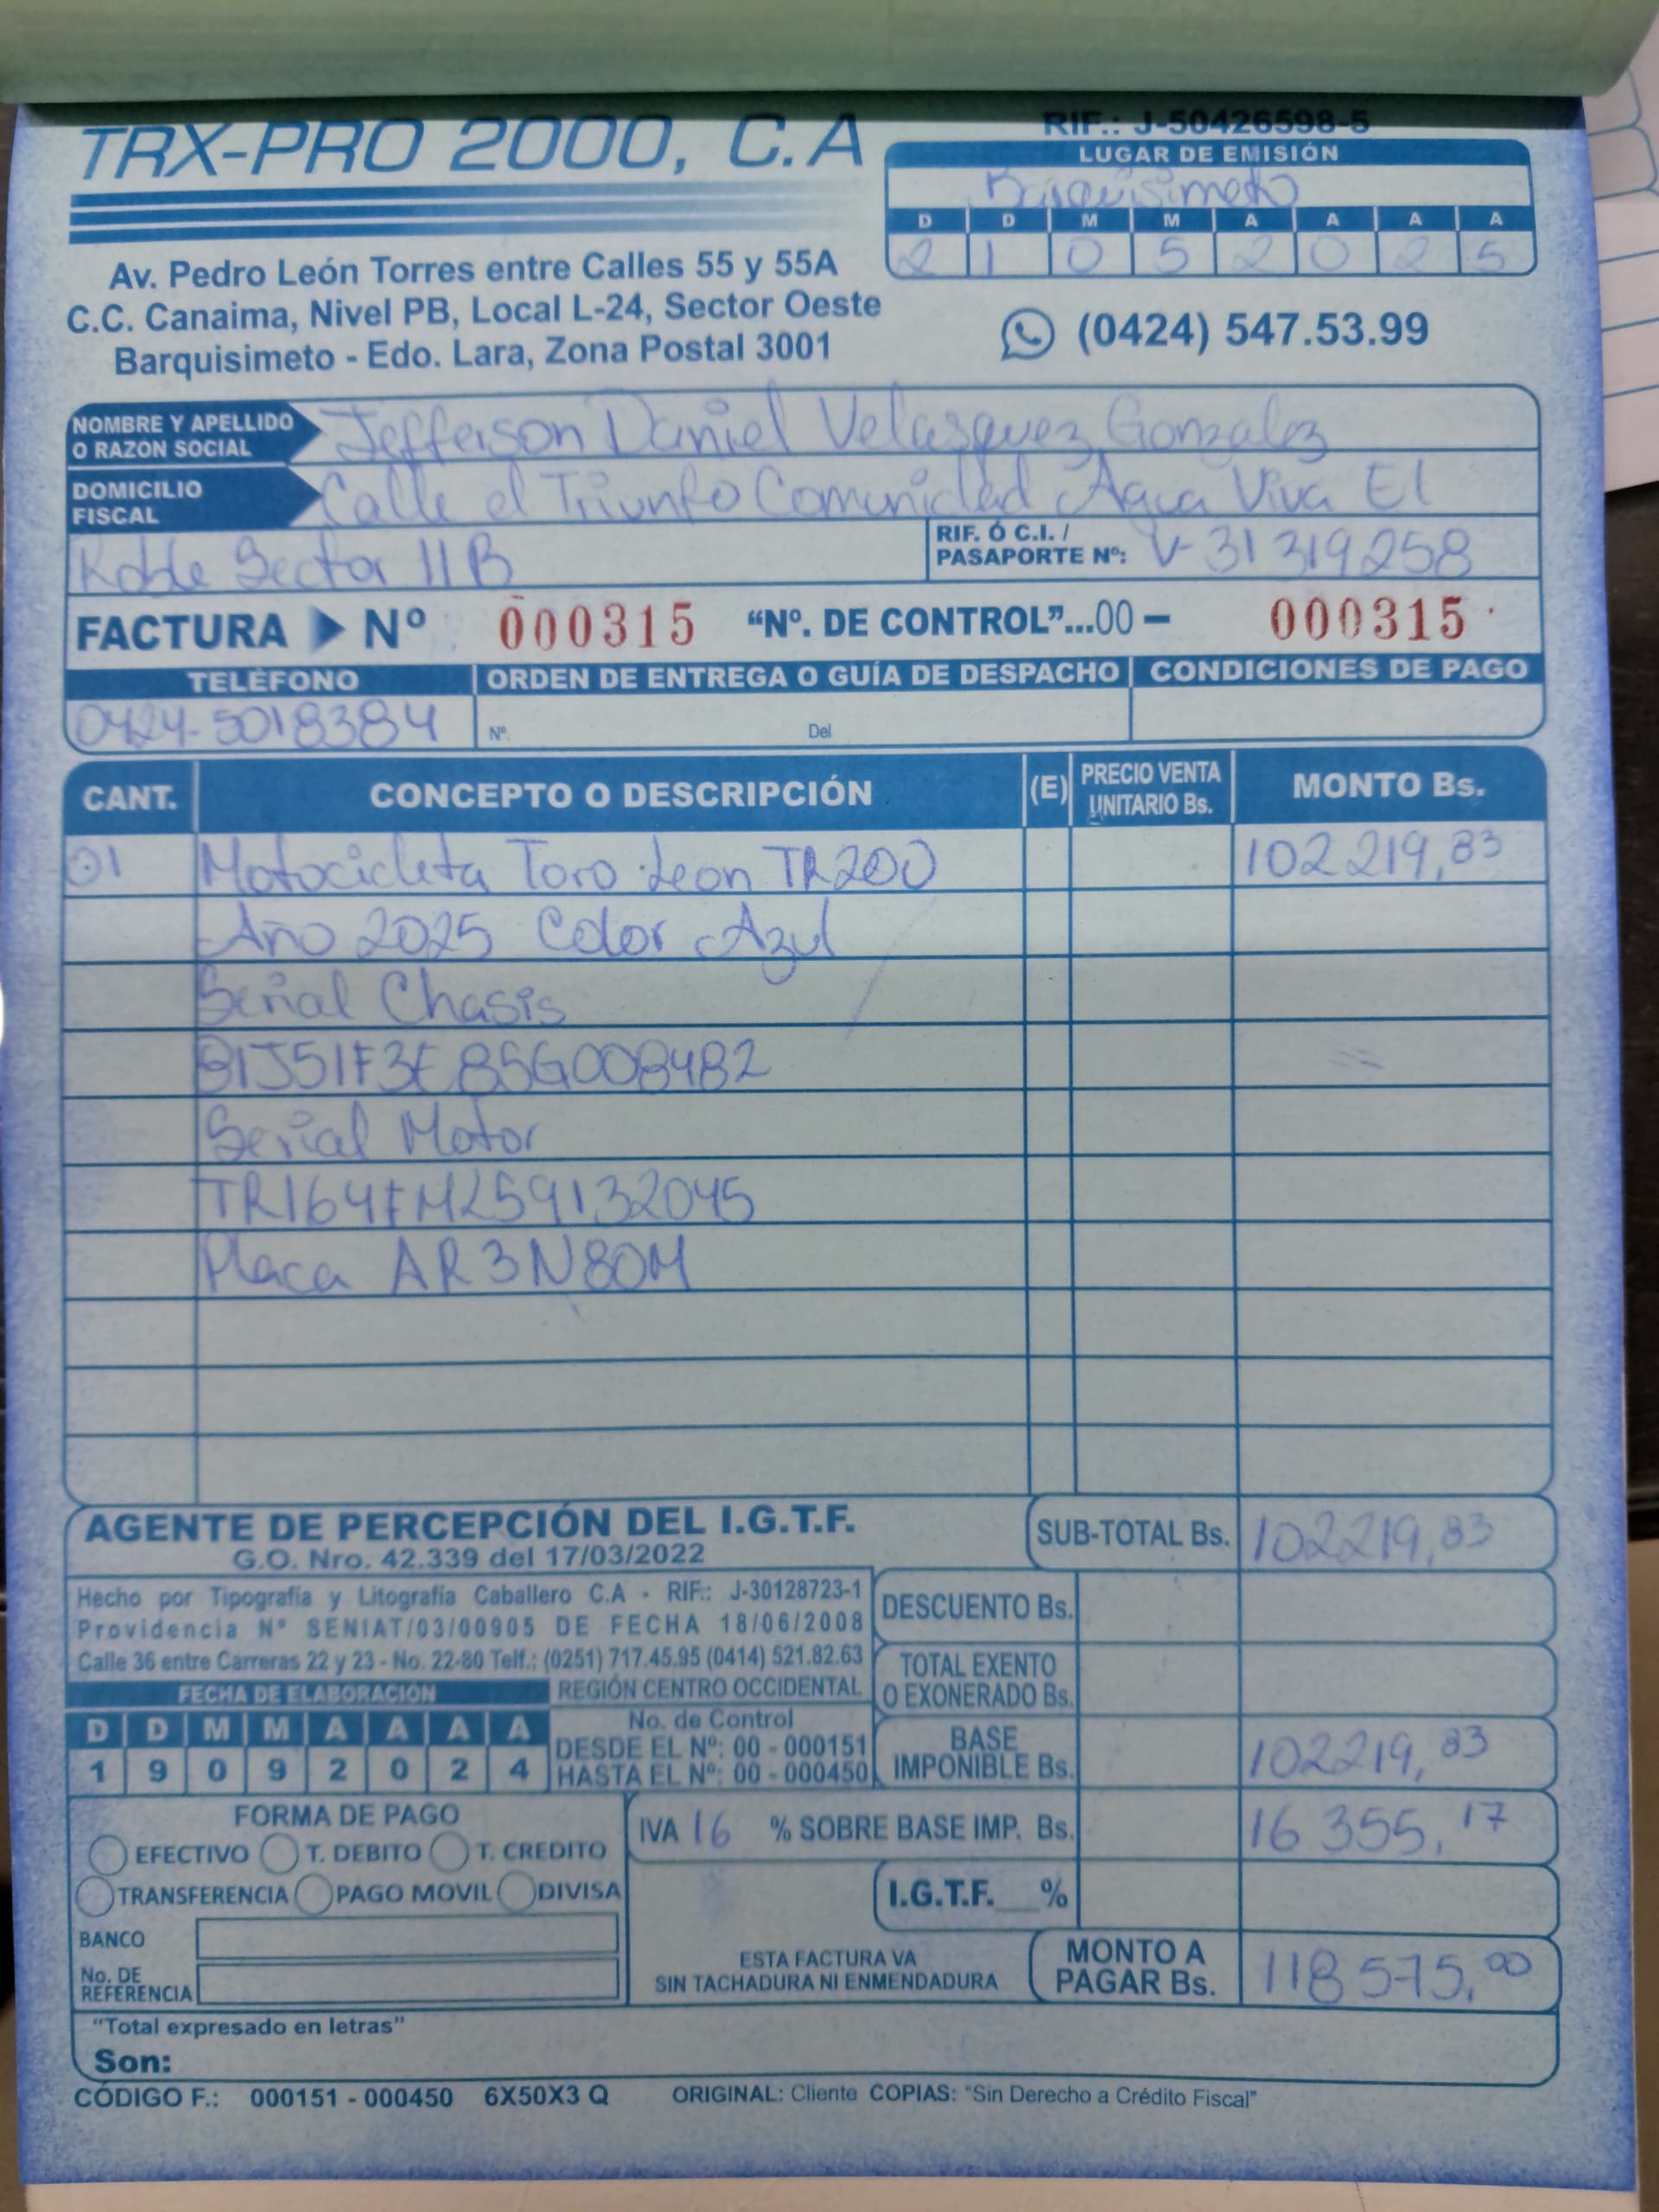 TRX-PRO 2000, C.A
RIF.: J-50426598-5
LUGAR DE EMISIÓN
Barquisimeto
D D M M A A A A
2 1 0 5 2 0 2 5
Av. Pedro León Torres entre Calles 55 y 55A
C.C. Canaima, Nivel PB, Local L-24, Sector Oeste
Barquisimeto - Edo. Lara, Zona Postal 3001
(0424) 547.53.99
NOMBRE Y APELLIDO O RAZON SOCIAL Jefferson Daniel Velasquez Gonzalez
DOMICILIO FISCAL Calle el Triunfo Comunidad Agua Viva El
Roble Sector 11B
RIF. Ó C.I. / PASAPORTE Nº: V-31319258
FACTURA Nº 000315 “Nº. DE CONTROL”...00 - 000315
TELÉFONO ORDEN DE ENTREGA O GUÍA DE DESPACHO CONDICIONES DE PAGO
0424-5018384 Nº. Del
CANT. CONCEPTO O DESCRIPCIÓN (E) PRECIO VENTA UNITARIO Bs. MONTO Bs.
01 Motocicleta Toro Leon TR200 102 219,83
Año 2025 Color Azul
Serial Chasis
Serial Motor
TR164FML59132045
Placa AR3N80M
AGENTE DE PERCEPCIÓN DEL I.G.T.F.
G.O. Nro. 42.339 del 17/03/2022
SUB-TOTAL Bs. 102219,83
Hecho por Tipografía y Litografía Caballero C.A - RIF.: J-30128723-1
Providencia Nº SENIAT/03/00905 DE FECHA 18/06/2008
Calle 36 entre Carreras 22 y 23 - No. 22-80 Telf.: (0251) 717.45.95 (0414) 521.82.63
REGIÓN CENTRO OCCIDENTAL
DESCUENTO Bs.
TOTAL EXENTO O EXONERADO Bs.
FECHA DE ELABORACIÓN
D D M M A A A A
1 9 0 9 2 0 2 4
No. de Control
DESDE EL Nº: 00 - 000151
HASTA EL Nº: 00 - 000450
BASE IMPONIBLE Bs. 102219,83
FORMA DE PAGO
EFECTIVO T. DEBITO T. CREDITO
TRANSFERENCIA PAGO MOVIL DIVISA
BANCO
No. DE REFERENCIA
IVA 16 % SOBRE BASE IMP. Bs. 16 355,17
I.G.T.F. %
ESTA FACTURA VA
SIN TACHADURA NI ENMENDADURA
MONTO A PAGAR Bs. 118575,00
"Total expresado en letras"
Son:
CÓDIGO F.: 000151 - 000450 6X50X3 Q ORIGINAL: Cliente COPIAS: "Sin Derecho a Crédito Fiscal"